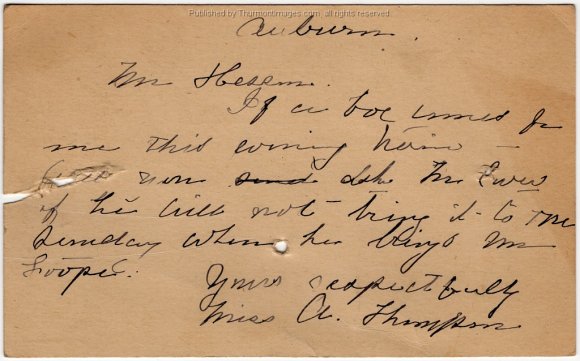 Published by Thurmontimages.com, all rights reserved
Auburn.
Mr Hessen.
If a box comes for
me this evening train –
you send ask Mr
if he will not bring it to me
Sunday when he brings Mr
Hooper.
Yours respectfully
Miss A. Thompson